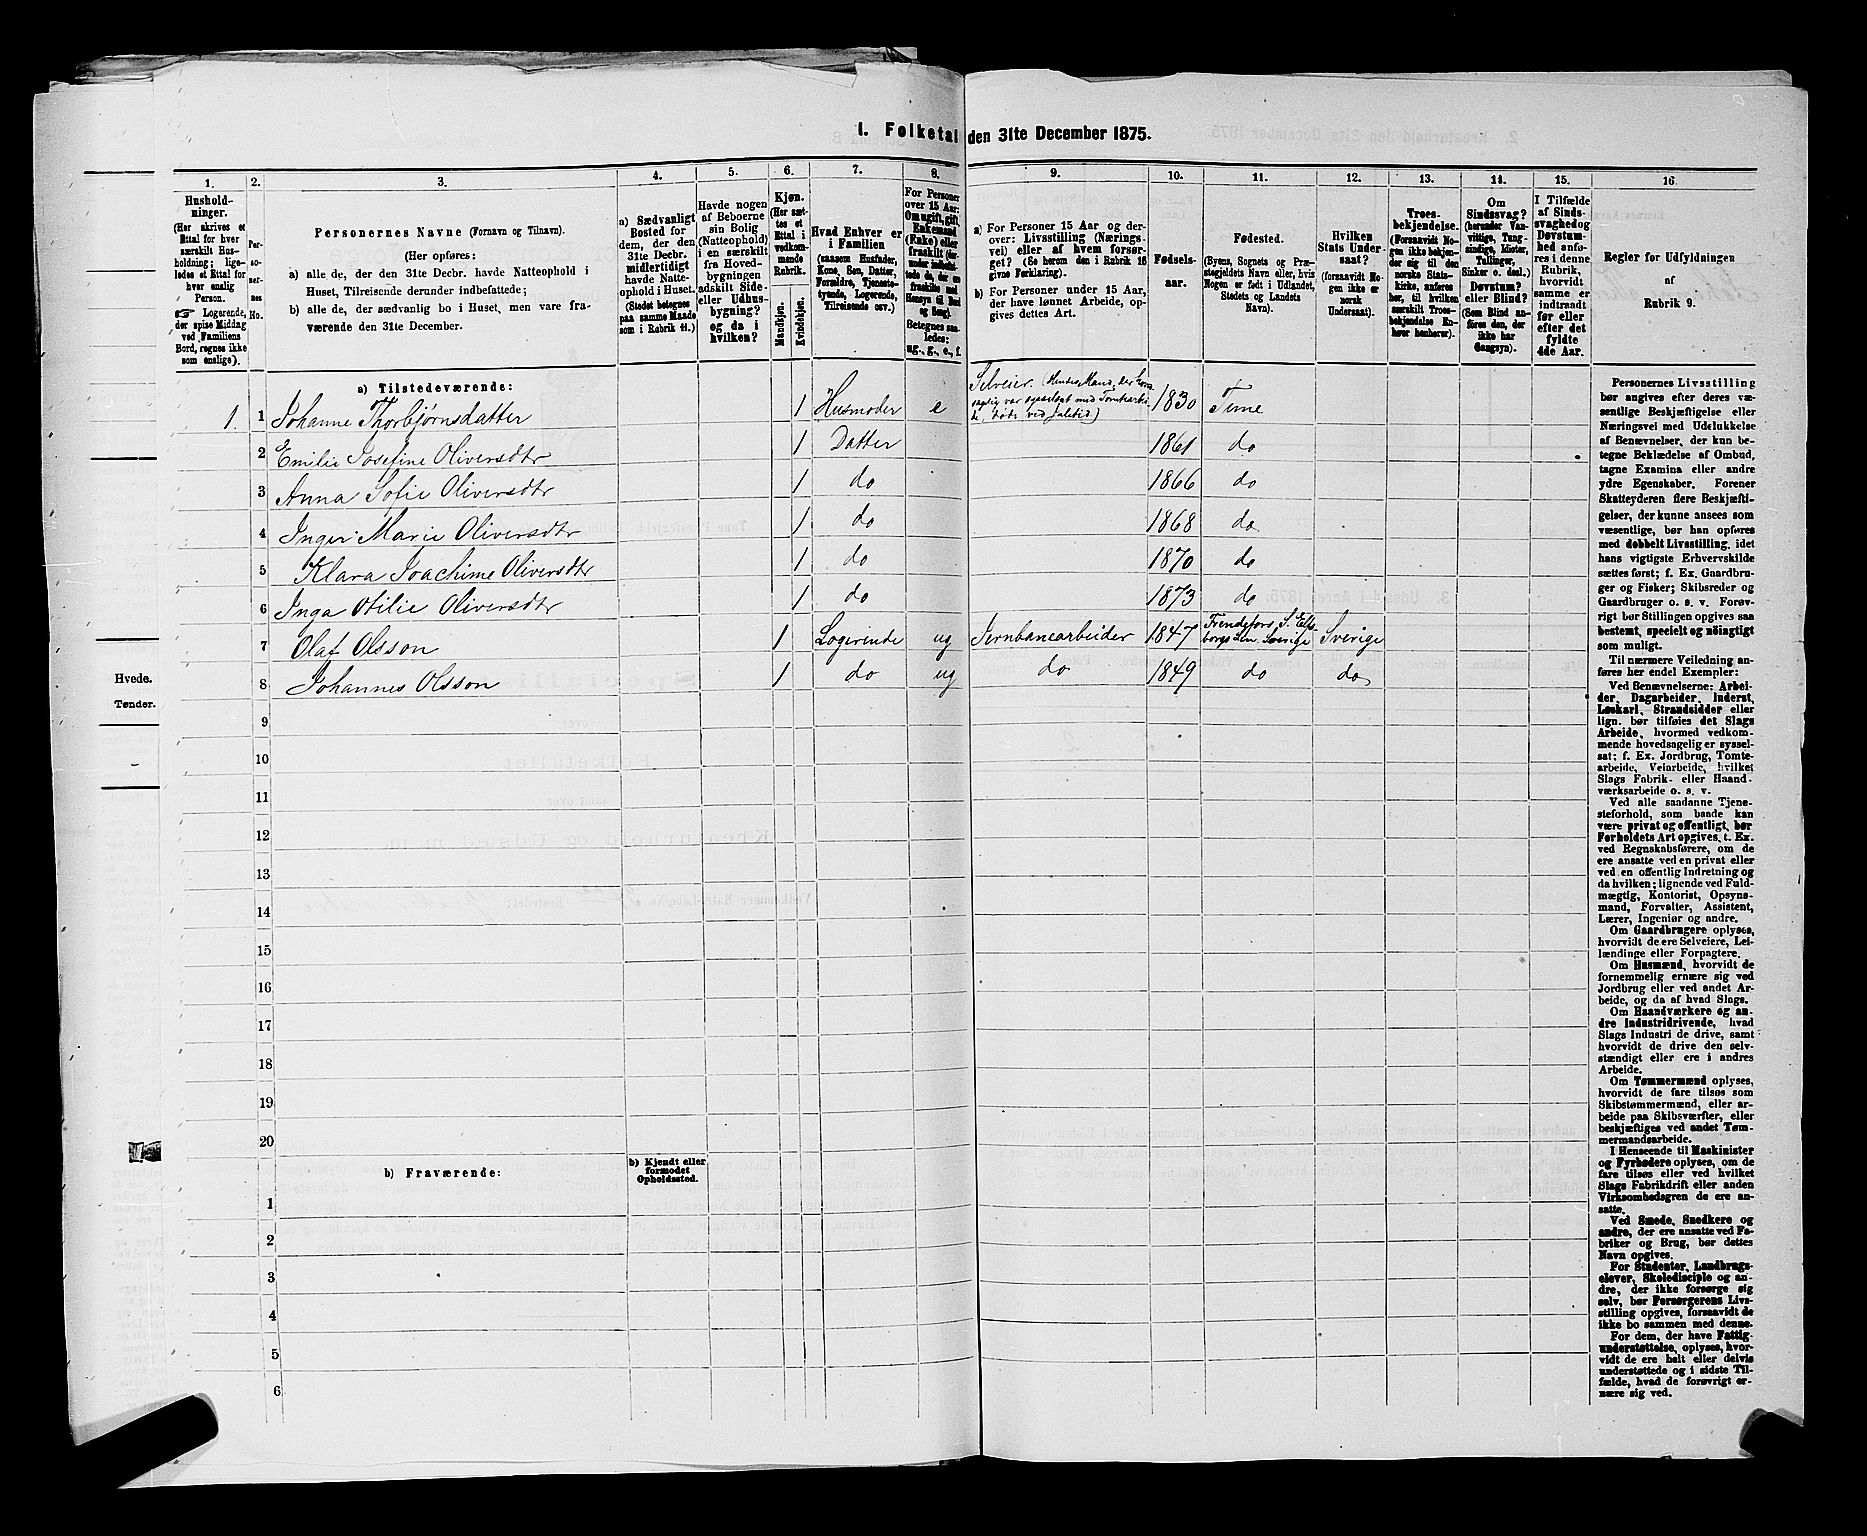 1. Folketal den 31te December 1875.
1. 2. 3. 4. 5. 6. 7. 8. 9. 10. 11. 12. 13. 14. 15. 16.
Hushold-
ninger.
(Her skrives et
Ettal for hver
særskilt Hus-
holdning; lige-
ledes et Ettal for
hver enslig
Person.
☞ Logerende,
der spise Middag
ved Familiens
Bord, regnes ikke
som enslige).
Per-
so-
ner-
nes
No.
Personernes Navne (Fornavn og Tilnavn).
(Her opføres:
a) alle de, der den 31te Decbr. havde Natteophold i
Huset, Tilreisende derunder indbefattede;
b) alle de, der sædvanlig bo i Huset, men vare fra-
værende den 31te December.
a) Sædvanligt
Bosted for
dem, der den
31te Decbr.
midlertidigt
havde Natte-
ophold i Huset.
(Stedet betegnes
paa samme Maade
som i Rubrik 11.)
Havde nogen
af Beboerne
sin Bolig
(Natteophold)
i en særskilt
fra Hoved-
bygningen
adskilt Side-
eller Udhus-
bygning?
og da i
hvilken?
Kjøn.
(Her sæt-
tes et
Ettal i
vedkom-
mende
Rubrik.
Mandkjøn.
Kvindekjøn.
Hvad Enhver er
i Familien
(saasom Husfader,
Kone, Søn, Datter,
Forældre, Tjeneste-
tyende, Logerende,
Tilreisende osv.)
For Personer
over 15 Aar:
Om ugift, gift
Enkemand
(Enke) eller
fraskilt
Betegnes saa-
ledes:
ug., g., e., f.
a) For Personer 15 Aar og der-
over: Livsstilling (Nærings-
vei) eller af hvem forsør-
get? (Se herom den i Rubrik 16
givne Forklaring).
b) For Personer under 15 Aar,
der have lønnet Arbeide, op-
gives dettes Art.
Fødsels-
aar.
Fødested.
(Byens, Sognets og Præ-
stegjeldets Navn eller, hvis
Nogen er født i Udlandet,
Stedets og Landets
Navn).
Hvilken
Stats Under-
saat?
(forsaavidt No-
gen ikke er
norsk
Undersaat).
Troes-
bekjendelse.
(Forsaavidt No-
gen ikke bekjen-
der sig til den
norske Stats-
kirke, anføres
her, til hvilken
særskilt Troes-
bekjendelse En-
hver henhører).
Om
Sindssvag?
(herunder Van-
vittige, Tung-
sindige, Idioter,
Tullinger,
Sinker o. desl.)
Døvstum?
eller Blind?
(Som Blind an-
føres den, der
ikke har
Gangsyn).
I Tilfælde
af Sinds-
svaghed og
Døvstum-
hed anfø-
res i denne
Rubrik,
hvorvidt
samme er
indtraadt
før eller
efter det
fyldte
4de Aar.
Regler for Udfyldningen
af
Rubrik 9.
a) Tilstedeværende:
1. 1 Johanne Thorbjørnsdatter 1 Husmoder e Selveier. (Hendes Mand, der 1830 Time
2 Emilie Josefine Oliversdtr 1 Datter 1861 do
3 Anna Sofie Oliversdtr 1 do 1866 do
4 Inger Marie Oliversdtr 1 do 1868 do
5 Klara Joachime Oliversdtr 1 do 1870 do
6 Inga Otilie Oliversdtr 1 do 1873 do
7 Olaf Olsson 1 Logerende ug Jernbanearbeider 1847 Sverige Sverige
8 Johannes Olsson 1 do ug do 1849 do do
9
10
11
12
13
14
15
16
17
18
19
20
b) Fraværende:
b) Kjendt eller
formodet
Opholdssted.
1
2
3
4
5
6
Hvede.
Tønder.
Personernes Livsstilling
bør angives efter deres væ-
sentlige Beskjæftigelse eller
Næringsvei med Udelukkelse
af Benævnelser, der kun be-
tegne Beklædelse af Ombud,
tagne Examina eller andre
ydre Egenskaber. Forener
Skatteyderen flere Beskjæfti-
gelser, der kunne ansees som
væsentlige, bør han opføres
med dobbelt Livsstilling, idet
hans vigtigste Erhvervskilde
sættes først; f. Ex. Gaardbru-
ger og Fisker; Skibsreder og
Gaardbruger o. s. v. Forøv-
rigt bør Stillingen opgives saa
bestemt, specielt og nøiagtigt
som muligt.
Til nærmere Veiledning an-
føres her endel Exempler:
Ved Benævnelserne: Arbei-
der, Dagarbeider, Inderst,
Løskarl, Strandsidder eller
lign. bør tilføies det Slags
Arbeide, hvormed vedkom-
mende hovedsagelig er syssel-
sat; f. Ex. Jordbrug, Tomte-
arbeide, Veiarbeide, hvilket
Slags Fabrik- eller Haand-
værksarbeide o. s. v.
Ved alle saadanne Tjene-
steforhold, som baade kan
være privat og offentligt, bør
Forholdets Art opgives, t. Ex.
ved Regnskabsførere, om de
ere ansatte ved en privat eller
ved en offentlig Indretning og
da hvilken; lignende ved Fuld-
mægtig, Kontorist, Opsyns-
mand, Forvalter, Assistent,
Lærer, Ingeniør og andre.
Om Gaardbrugere oplyses,
hvorvidt de ere Selveiere, Lei-
lændinge eller Forpagtere.
Om Husmænd, hvorvidt de
fornemmelig ernære sig ved
Jordbrug eller ved andet Ar-
beide, og da af hvad Slags.
Om Haandværkere og an-
dre Industridrivende, hvad
Slags Industri de drive, samt
hvorvidt de drive den selv-
stændigt eller ere i andres
Arbeide.
Om Tømmermænd oplyses,
hvorvidt de fare tilsøs som
Skibstømmermænd, eller ar-
beide paa Skibsværfter, eller
beskjæftiges ved andet Tøm-
mermandsarbeide.
I Henseende til Maskinister
og Fyrbødere oplyses, om de
fare tilsøs eller ved hvilket
Slags Fabrikdrift eller anden
Virksomhedsgren de ere an-
satte.
Ved Smede, Snedkere og
andre, der ere ansatte ved Fa-
briker og Brug, bør dettes
Navn opgives.
For Studenter, Landbrugs-
elever, Skoledisciple og an-
dre, der ikke forsørge sig
selv, bør Forsørgerens Livs-
stilling opgives, forsaavidt de
ikke bo sammen med denne.
For dem, der have Fattig-
understøttelse, oplyses, hvor-
vidt de ere helt eller delvis
understøttede og i sidste Til-
fælde, hvad de forøvrigt er-
nære sig ved.